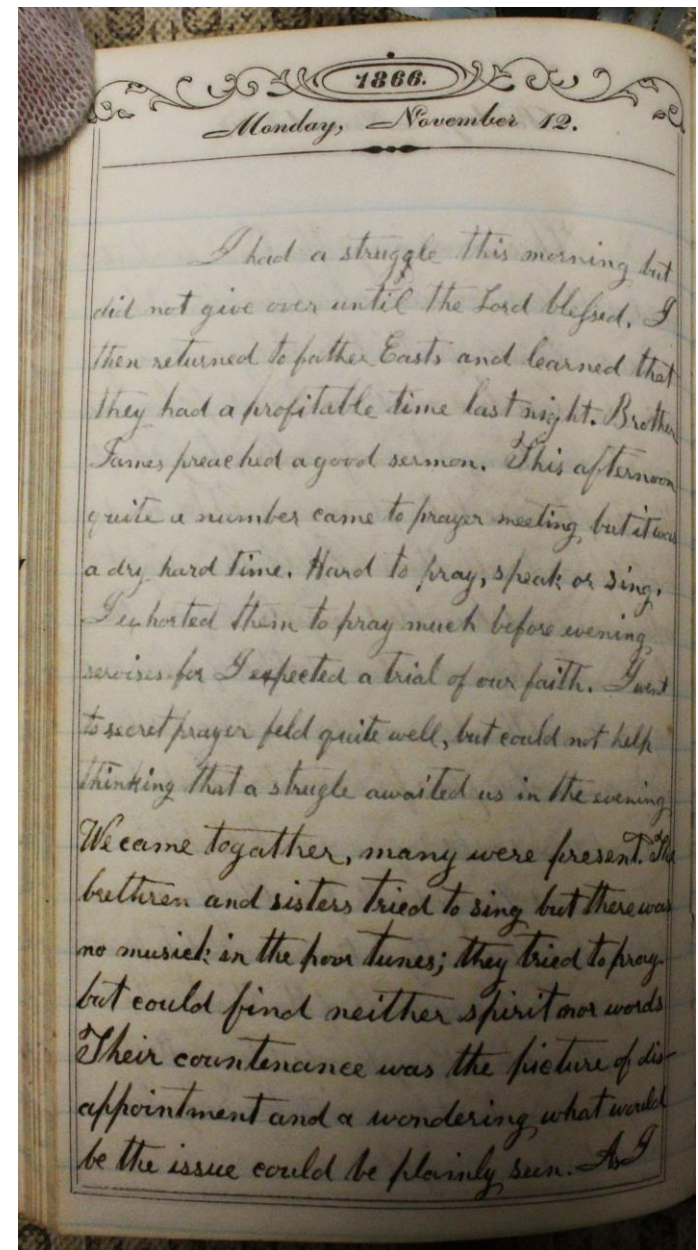 1866.
Monday, November 12.
I had a struggle this morning but
did not give over until the Lord blessed. I
then returned to father Easts and learned that
they had a profitable time last night. Brother
James preached a good sermon. This afternoon
quite a number came to prayer meeting but it was
a dry hard time. Hard to pray, speak or sing.
I exhorted them to pray much before evening
servises for I expected a trial of our faith. I went
to secret prayer feld quite well, but could not help
thinking that a strugle awaited us in the evening
We came togather, many were present. The
brethren and sisters tried to sing but there was
no musick in the poor tunes; they tried to pray
but could find neither spirit nor words
Their countenance was the picture of dis-
appointment and a wondering what would
be the issue could be plainly seen. As I